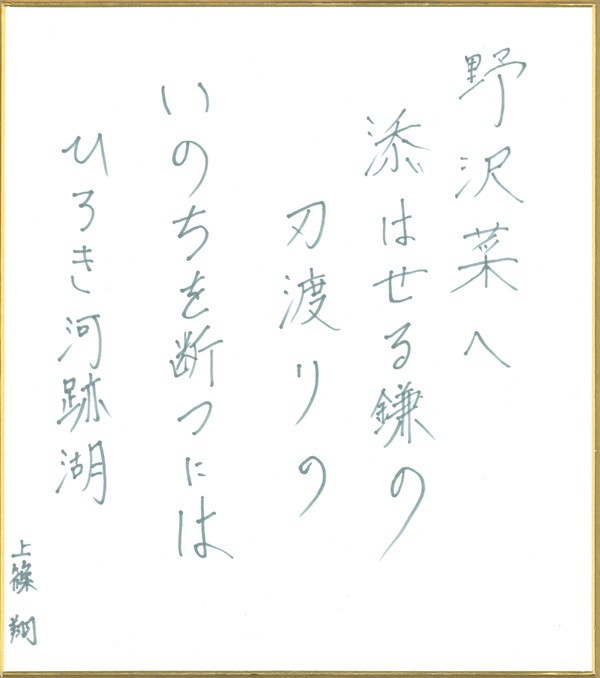 野沢菜へ
添はせる鎌の
刃渡りの
いのちを断つには
ひろき河跡湖
上篠 翔